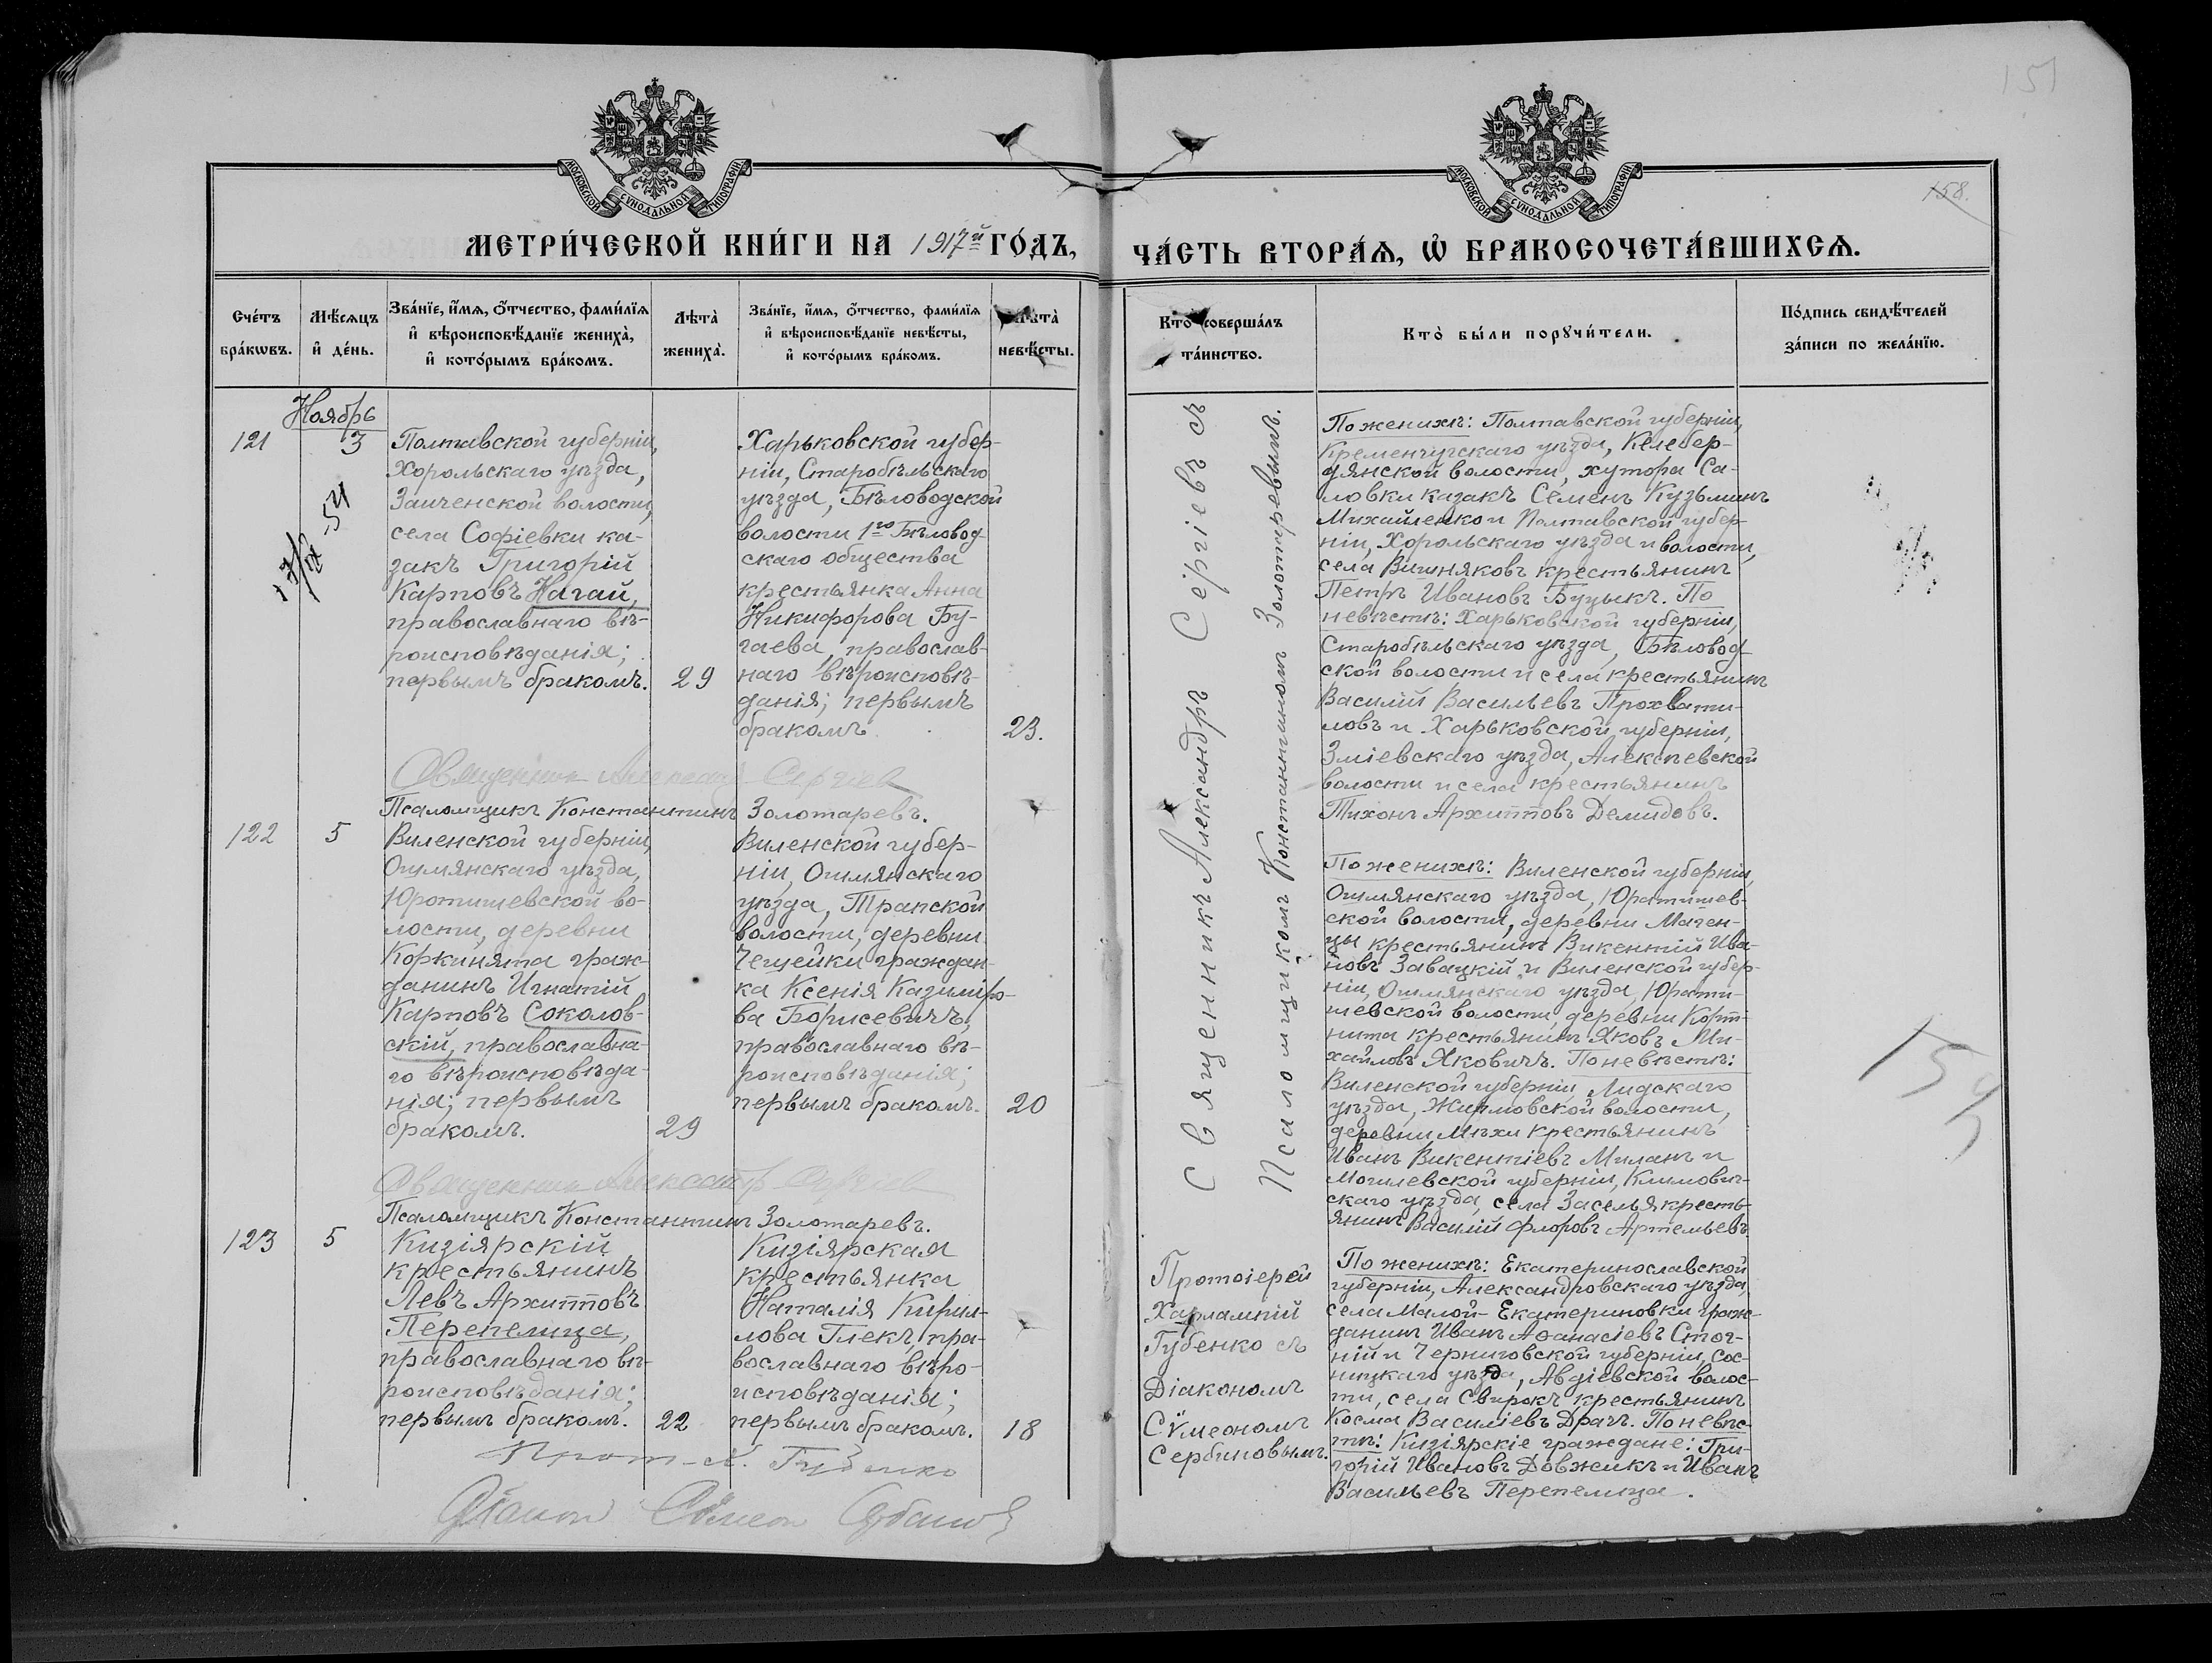 151
158.
МОСКОВСКОЙ СѴНОДАЛЬНОЙ ТИПОГРАФІИ
МОСКОВСКОЙ СѴНОДАЛЬНОЙ ТИПОГРАФІИ
МЕТРИ́ЧЕСКОЙ КНИ́ГИ НА 1917й ГО́ДЪ,
ЧА́СТЬ ВТОРА́Ѧ, Ѡ҆ БРАКОСОЧЕТА́ВШИХСѦ.
Сче́тъ бра́кѡвъ.
Мѣ́сѧцъ и҆ де́нь.
Зва́нїе, и҆́мѧ, ѻ҆́тчество, фами́лїѧ
и҆ вѣроисповѣ́данїе жениха̀,
и҆ кото́рымъ бра́комъ.
Лѣта̀ жениха̀.
Зва́нїе, и҆́мѧ, ѻ҆́тчество, фами́лїѧ
и҆ вѣроисповѣ́данїе невѣ́сты,
и҆ кото́рымъ бра́комъ.
Лѣта̀ невѣ́сты.
Кто̀ соверша́лъ
та́инство.
Кто̀ бы́ли порꙋчи́тели.
По́дпись свидѣ́телей
за́писи по жела́нїю.
Ноябрь
121
3
Полтавской губерніи,
Хорольскаго уѣзда,
Заиченской волости,
села Софіевки ка-
закъ Григорій
Карповъ Нагай,
православнаго вѣ-
роисповѣданія;
первымъ бракомъ.
29
Харьковской губер-
ніи, Старобѣльскаго
уѣзда, Бѣловодской
волости 1го Бѣловод-
скаго общества
крестьянка Анна
Никифорова Бу-
гаева, православ-
наго вѣроисповѣ-
данія; первымъ
бракомъ
23.
Священникъ Александръ Сергіевъ
Псаломщикъ Константинъ Золотаревъ.
122
5
Виленской губерніи,
Ошмянскаго уѣзда,
Юротишевской во-
лости, деревни
Коркинята граж-
данинъ Игнатій
Карповъ Соколов-
скій, православна-
го вѣроисповѣда-
нія; первымъ
бракомъ.
29
Виленской губер-
ніи, Ошмянскаго
уѣзда, Трапской
волости, деревни
Чещейки граждан-
ка Ксенія Казиміро-
ва Борисевичъ,
православнаго вѣ-
роисповѣданія;
первымъ бракомъ.
20
Священникъ Александръ Сергіевъ
Псаломщикъ Константинъ Золотаревъ.
123
5
Кизіярскій
крестьянинъ
Левъ Архипповъ
Перепелица,
православнаго вѣ-
роисповѣданія;
первымъ бракомъ.
22
Кизіярская
крестьянка
Наталія Кирил-
лова Глекъ, пра-
вославнаго вѣро-
исповѣданія;
первымъ бракомъ.
18
Прот. Х. Губенко
Діаконъ Сѵмеонъ Сербиновъ
Священникъ Александръ Сергіевъ съ
Псаломщикомъ Константиномъ Золотаревымъ.
По женихѣ: Полтавской губерніи,
Кременчугскаго уѣзда, Келебер-
дянской волости, хутора Са-
ловки казакъ Семенъ Кузьминъ
Михайленко и Полтавской губер-
ніи, Хорольскаго уѣзда и волости,
села Вишняковъ крестьянинъ
Петръ Ивановъ Буцыкъ. По
невѣстѣ: Харьковской губерніи,
Старобѣльскаго уѣзда, Бѣловод-
ской волости и села крестьянинъ
Василій Васильевъ Прохвати-
ловъ и Харьковской губерніи,
Зміевскаго уѣзда, Алексѣевской
волости и села крестьянинъ
Тихонъ Архипповъ Демидовъ.
По женихѣ: Виленской губерніи,
Ошмянскаго уѣзда, Юратишев-
ской волости, деревни Маген-
цы крестьянинъ Викентій Ива-
новъ Завацкій и Виленской губер-
ніи, Ошмянскаго уѣзда, Юрати-
шевской волости, деревни
крестьянинъ Яковъ Ми-
хайловъ Яковичъ. По невѣстѣ:
Виленской губерніи, Лидскаго
уѣзда, Жирмовской волости,
деревни Мѣхи крестьянинъ
Иванъ Викентіевъ Миланъ и
Могилевской губерніи, Климович-
скаго уѣзда, села Заселья кресть-
янинъ Василій Флоровъ Артемьевъ.
Протоіерей
Харлампій
Губенко съ
Діакономъ
Сѵмеономъ
Сербиновымъ.
По женихѣ: Екатеринославской
губерніи, Александровскаго уѣзда,
села Малой-Екатериновки граж-
данинъ Иванъ Аѳанасіевъ Стог-
ній и Черниговской губерніи, Сос-
ницкаго уѣзда, Авдіевской волос-
ти, села Свирокъ, крестьянинъ
Косма Василіевъ Драгъ. По невѣс-
тѣ: Кизіярскіе граждане: Гри-
горій Ивановъ Довжикъ и Иванъ
Васильевъ Перепелица.